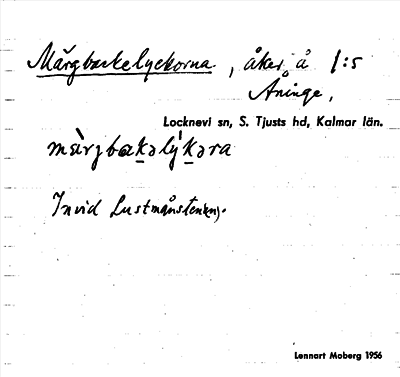 Märgbackelyckorna, åker å 1:5
Åninge,
Locknevi sn, S. Tjusts hd, Kalmar län.
mærjbakəlýkəra
Invid Lustmånsten(en).
Lennart Moberg 1956